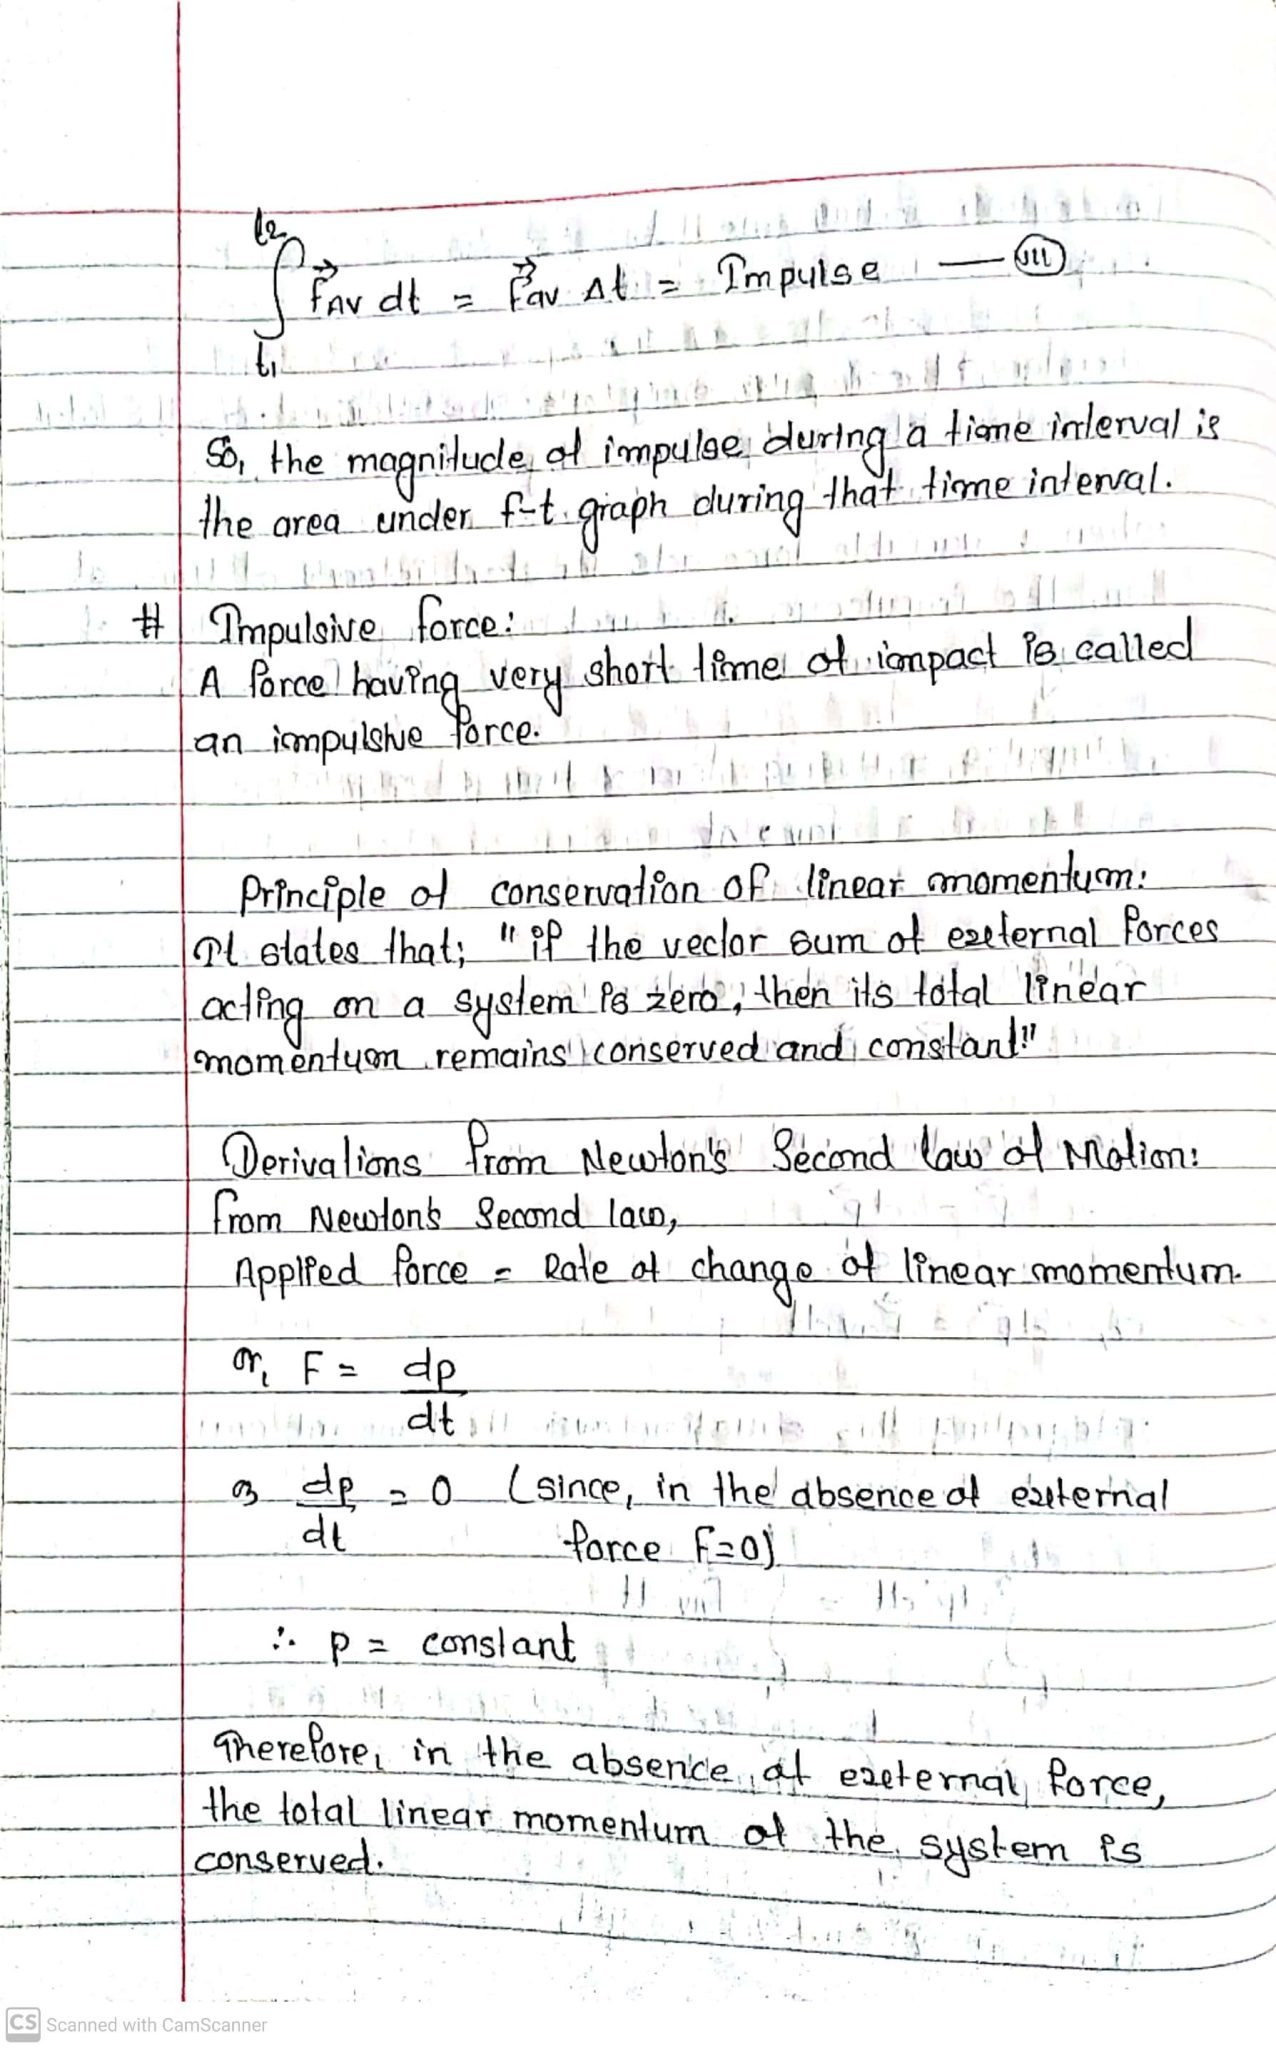 t2
∫ F⃗AV dt = F⃗av Δt = Impulse — (III)
t1
So, the magnitude of impulse during a time interval is
the area under f-t graph during that time interval.
# Impulsive force:
A force having very short time of impact is called
an impulsive force.
Principle of conservation of linear momentum:
It states that; "if the vector sum of external forces
acting on a system is zero, then its total linear
momentum remains conserved and constant!"
Derivations from Newton's Second law of Motion:
from Newton's Second law,
Applied force = Rate of change of linear momentum.
or, F = dp
dt
or dp = 0 (since, in the absence of external
dt force F=0)
∴ p = constant
Therefore, in the absence of external force,
the total linear momentum of the system is
conserved.
CS Scanned with CamScanner